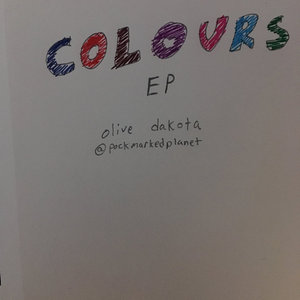 COLOURS
EP
olive dakota
@pockmarkedplanet